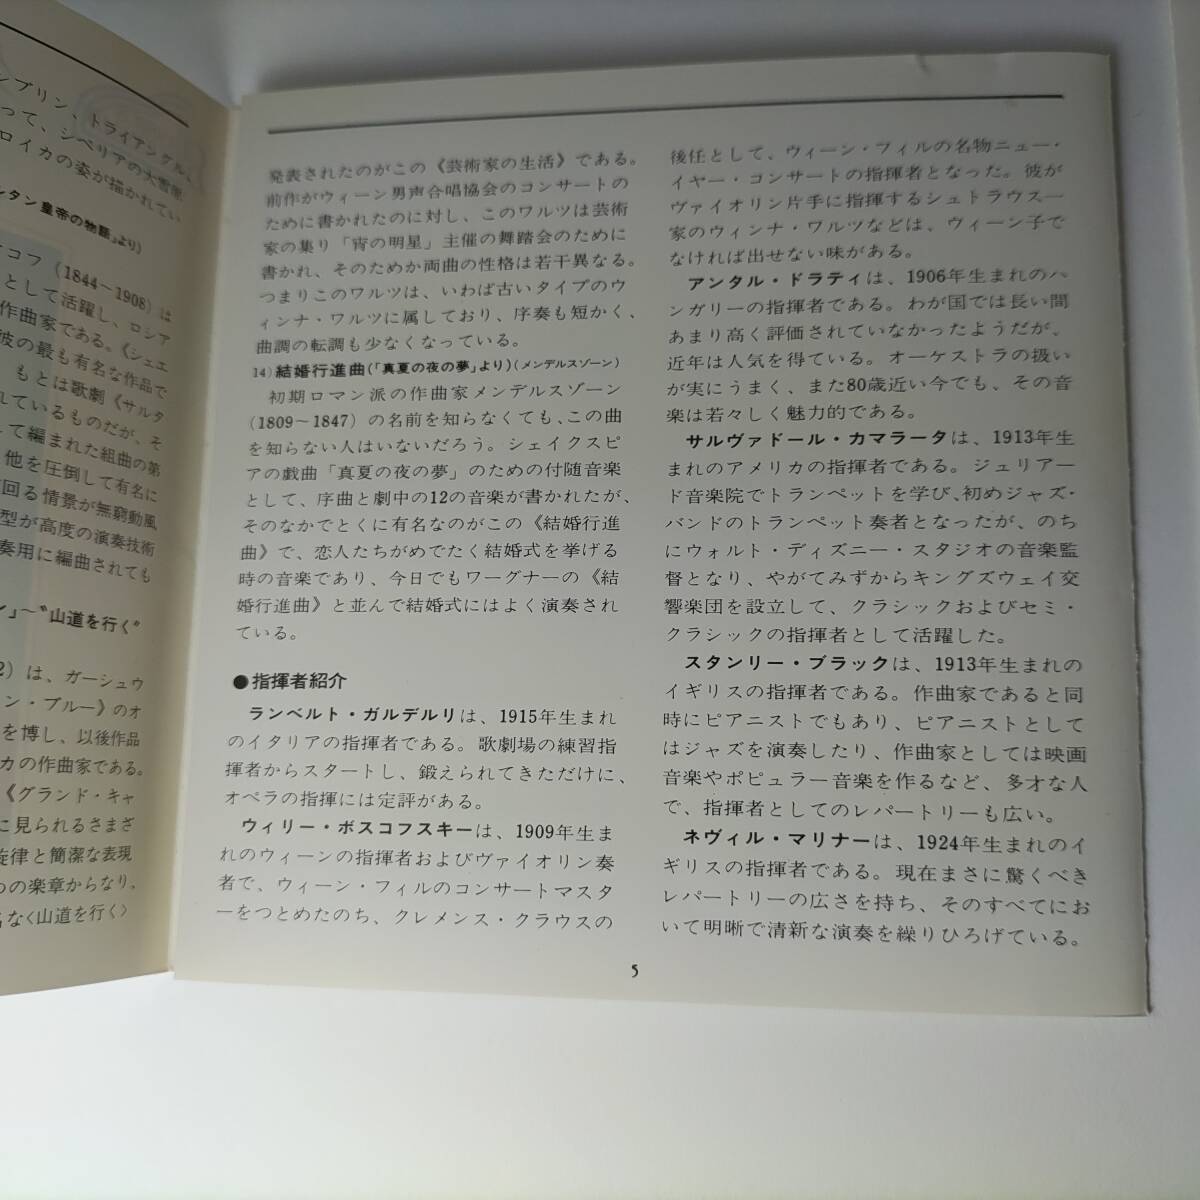 ンブリン、トライアングル、
って、シベリアの大雪原
ロイカの姿が描かれてい
ルタン皇帝の物語」より)
コフ(1844〜1908)は
として活躍し、ロシア
作曲家である。《シェエ
彼の最も有名な作品で
もとは歌劇《サルタ
れているものだが、そ
て編まれた組曲の第
他を圧倒して有名に
回る情景が無窮動風
型が高度の演奏技術
奏用に編曲されても
ン」〜“山道を行く”
2)は、ガーシュウ
ン・ブルー》のオ
を博し、以後作品
カの作曲家である。
《グランド・キャ
に見られるさまざ
旋律と簡潔な表現
つの楽章からなり、
名な〈山道を行く〉
発表されたのがこの《芸術家の生活》である。
前作がウィーン男声合唱協会のコンサートの
ために書かれたのに対し、このワルツは芸術
家の集り「宵の明星」主催の舞踏会のために
書かれ、そのためか両曲の性格は若干異なる。
つまりこのワルツは、いわば古いタイプのウ
ィンナ・ワルツに属しており、序奏も短かく、
曲調の転調も少なくなっている。
14)結婚行進曲(「真夏の夜の夢」より)(メンデルスゾーン)
初期ロマン派の作曲家メンデルスゾーン
(1809〜1847)の名前を知らなくても、この曲
を知らない人はいないだろう。シェイクスピ
アの戯曲「真夏の夜の夢」のための付随音楽
として、序曲と劇中の12の音楽が書かれたが、
そのなかでとくに有名なのがこの《結婚行進
曲》で、恋人たちがめでたく結婚式を挙げる
時の音楽であり、今日でもワーグナーの《結
婚行進曲》と並んで結婚式にはよく演奏され
ている。
●指揮者紹介
ランベルト・ガルデルリは、1915年生まれ
のイタリアの指揮者である。歌劇場の練習指
揮者からスタートし、鍛えられてきただけに、
オペラの指揮には定評がある。
ウィリー・ボスコフスキーは、1909年生ま
れのウィーンの指揮者およびヴァイオリン奏
者で、ウィーン・フィルのコンサートマスタ
ーをつとめたのち、クレメンス・クラウスの
後任として、ウィーン・フィルの名物ニュー・
イヤー・コンサートの指揮者となった。彼が
ヴァイオリン片手に指揮するシュトラウス一
家のウィンナ・ワルツなどは、ウィーン子で
なければ出せない味がある。
アンタル・ドラティは、1906年生まれのハ
ンガリーの指揮者である。わが国では長い間
あまり高く評価されていなかったようだが、
近年は人気を得ている。オーケストラの扱い
が実にうまく、また80歳近い今でも、その音
楽は若々しく魅力的である。
サルヴァドール・カマラータは、1913年生
まれのアメリカの指揮者である。ジュリアー
ド音楽院でトランペットを学び、初めジャズ・
バンドのトランペット奏者となったが、のち
にウォルト・ディズニー・スタジオの音楽監
督となり、やがてみずからキングズウェイ交
響楽団を設立して、クラシックおよびセミ・
クラシックの指揮者として活躍した。
スタンリー・ブラックは、1913年生まれの
イギリスの指揮者である。作曲家であると同
時にピアニストでもあり、ピアニストとして
はジャズを演奏したり、作曲家としては映画
音楽やポピュラー音楽を作るなど、多才な人
で、指揮者としてのレパートリーも広い。
ネヴィル・マリナーは、1924年生まれのイ
ギリスの指揮者である。現在まさに驚くべき
レパートリーの広さを持ち、そのすべてにお
いて明晰で清新な演奏を繰りひろげている。
5